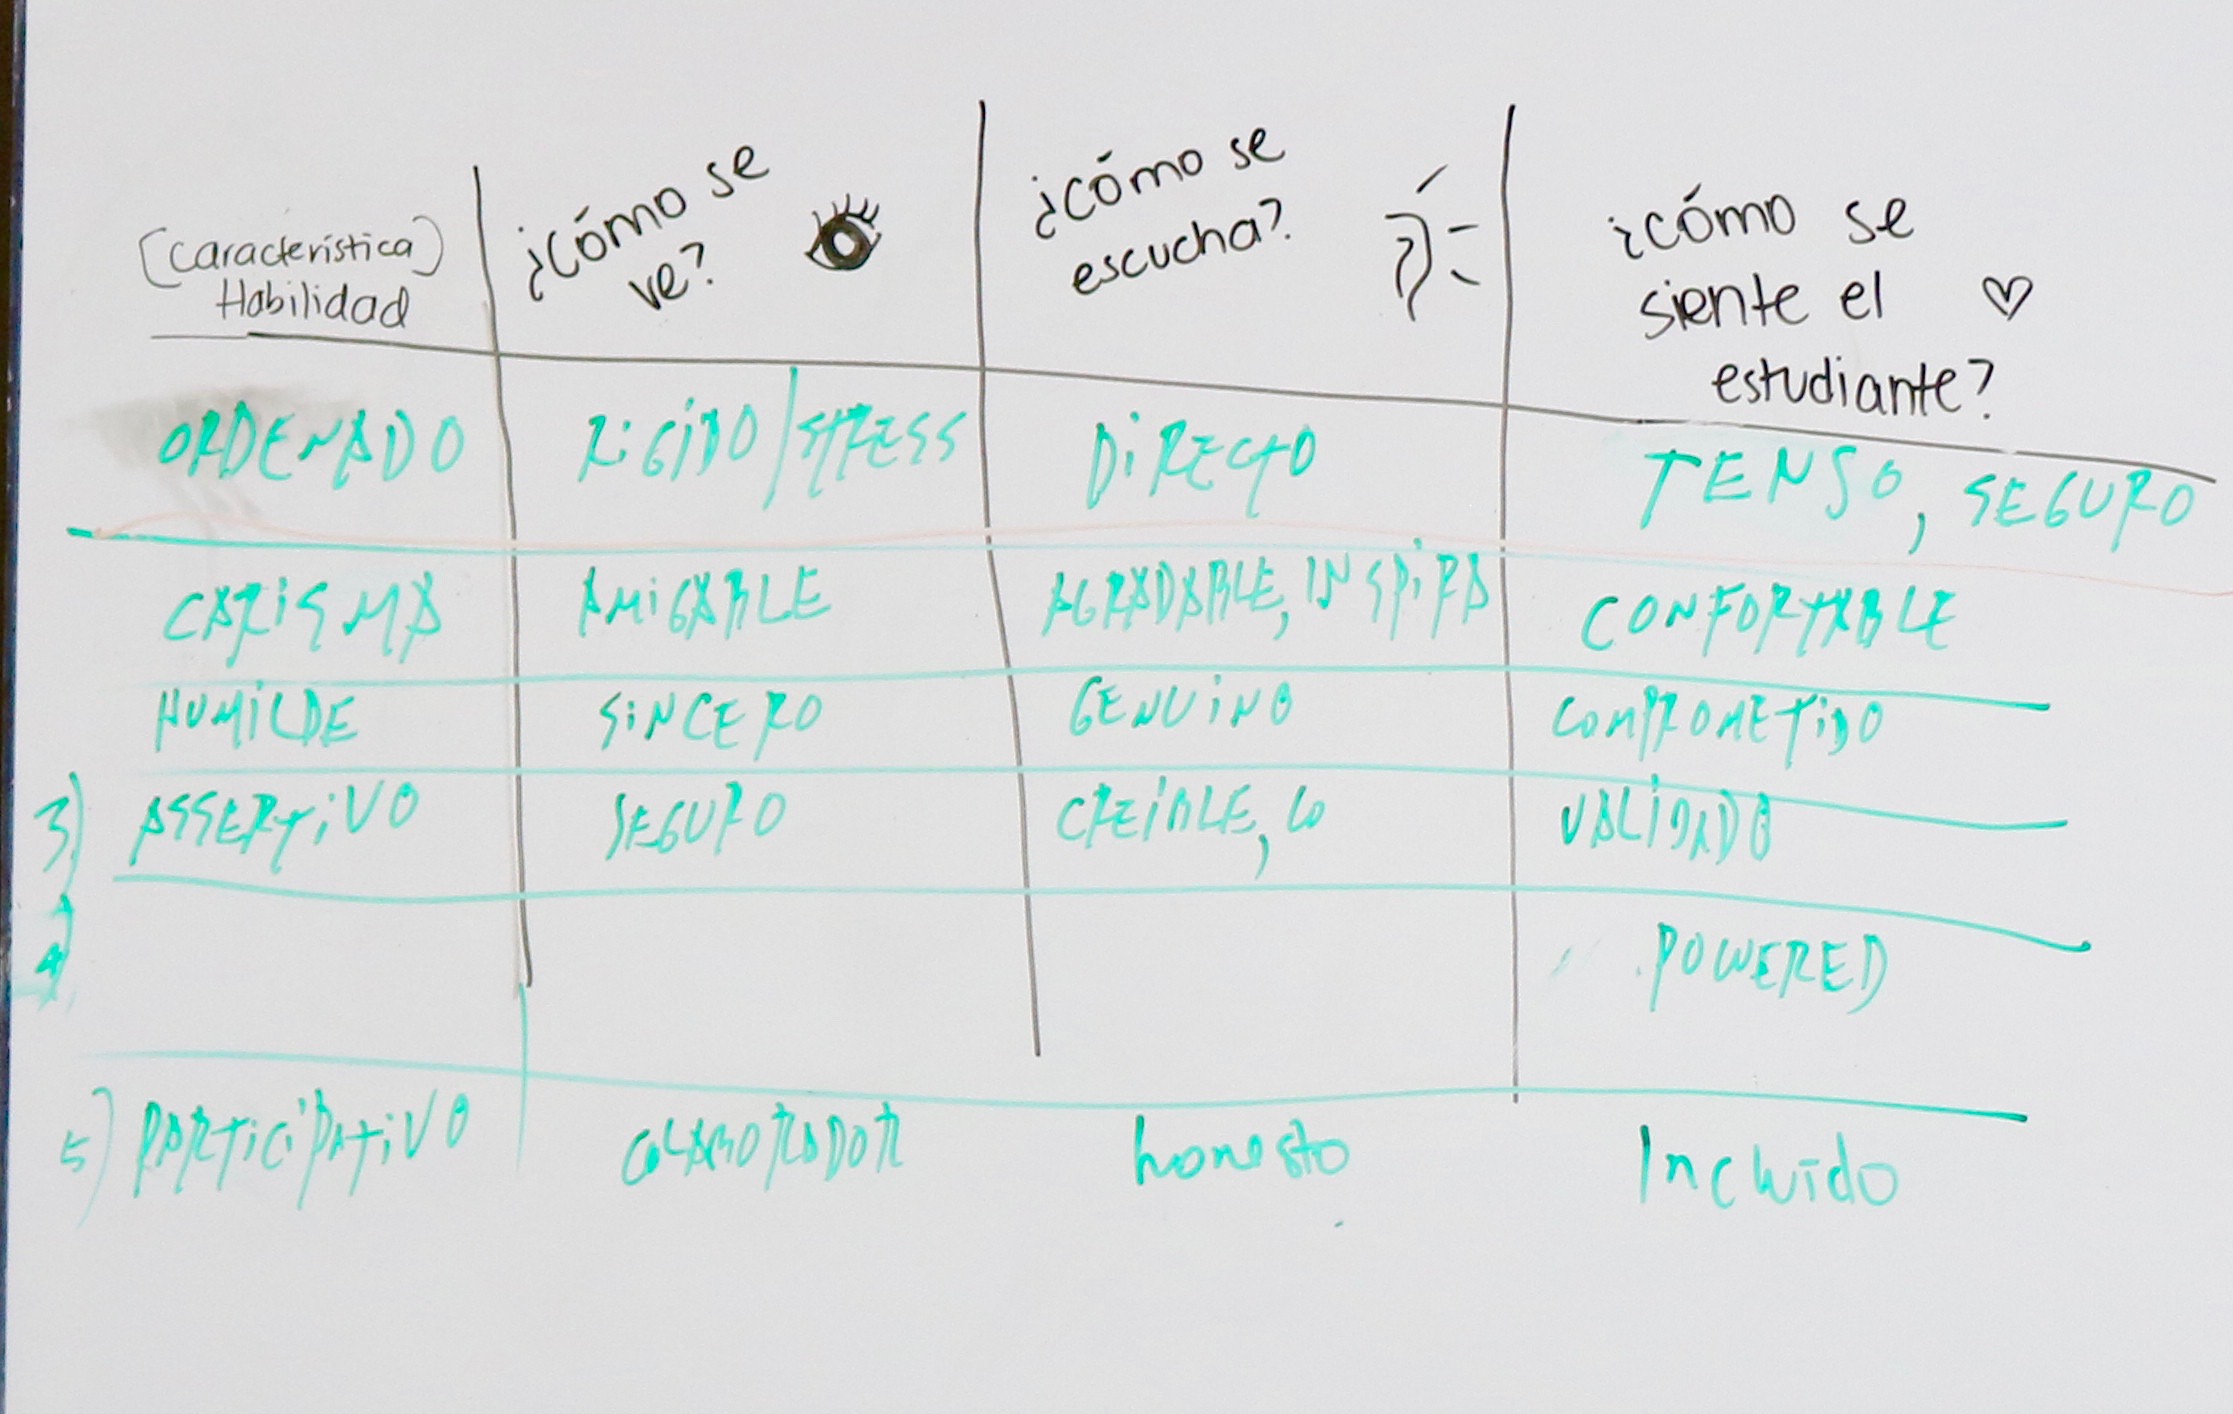 (Característica) Habilidad
¿Cómo se ve?
¿cómo se escucha?
¿cómo se siente el estudiante?
ORDENADO
RiGiDO/STRESS
DiRECTO
TENSO, SEGURO
CARiSMA
AMiGABLE
AGRADABLE, INSPiRA
CONFORTABLE
HUMiLDE
SiNCERO
GENUiNO
COMPROMETiDO
3) ASSERTiVO
SEGURO
CREiBLE, CO
VALiDADO
4)
POWERED
5) PARTICIPATiVO
COLABORADOR
honesto
Incluido